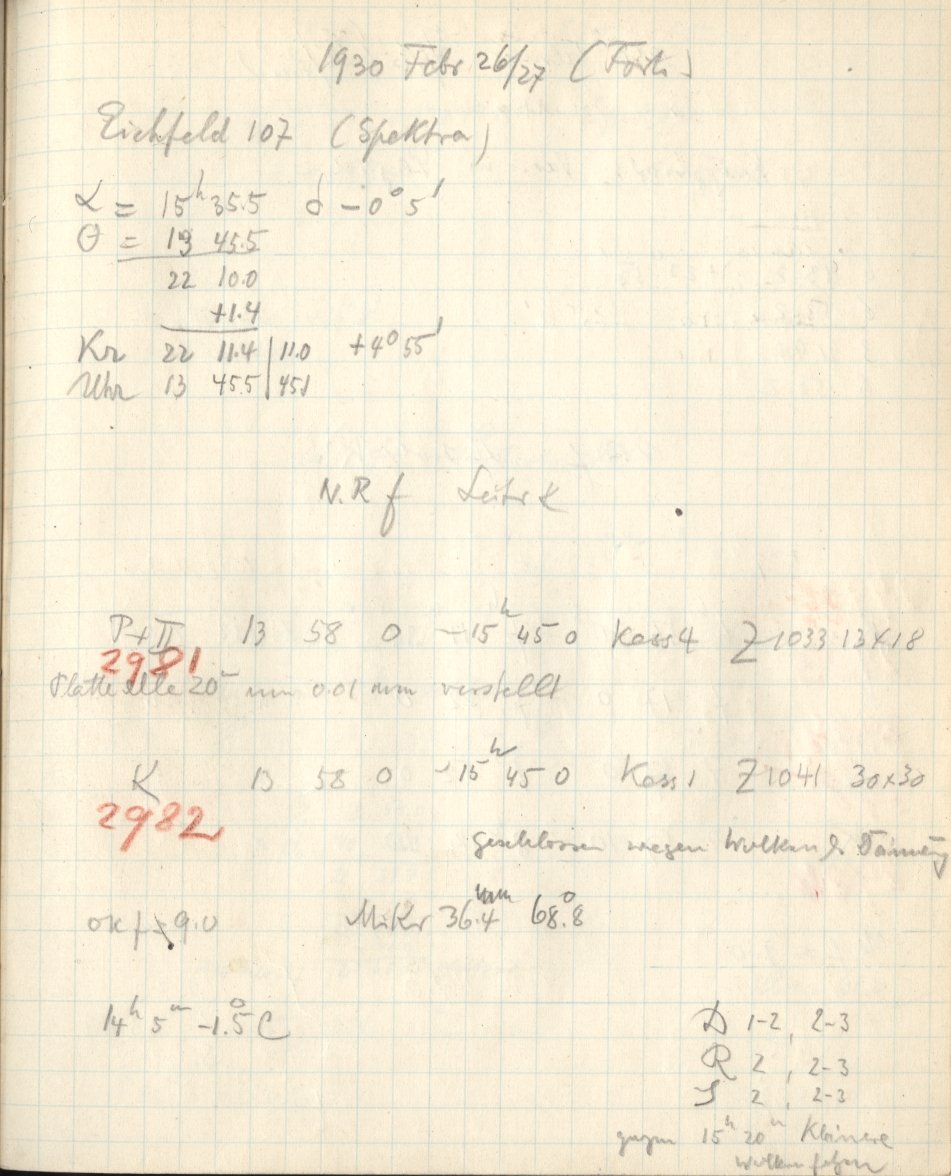 1930 Febr 26/27 (Forts)
Eichfeld 107 (Spektra)
α = 15ʰ 35.5 δ -0° 5'
θ = 13 45.5
22 10.0
+1.4
Kr 22 11.4 | 11.0 +4° 55'
Uhr 13 45.5 | 45.1
N.R f
P+II 13 58 0 - 15ʰ 45 0 Kass 4 Z 1033 13x18
2981
Platte alle 20ᵐ um 0.01 mm verstellt
K 13 58 0 - 15ʰ 45 0 Kass 1 Z 1041 30x30
2982
geschlossen wegen Wolken &
9.0 Mikr 36.4ᵐᵐ 68.8°
14ʰ 5ᵐ -1.5° C
D 1-2, 2-3
R 2, 2-3
S 2, 2-3
gegen 15ʰ 20ᵐ Kleinere
Wolken